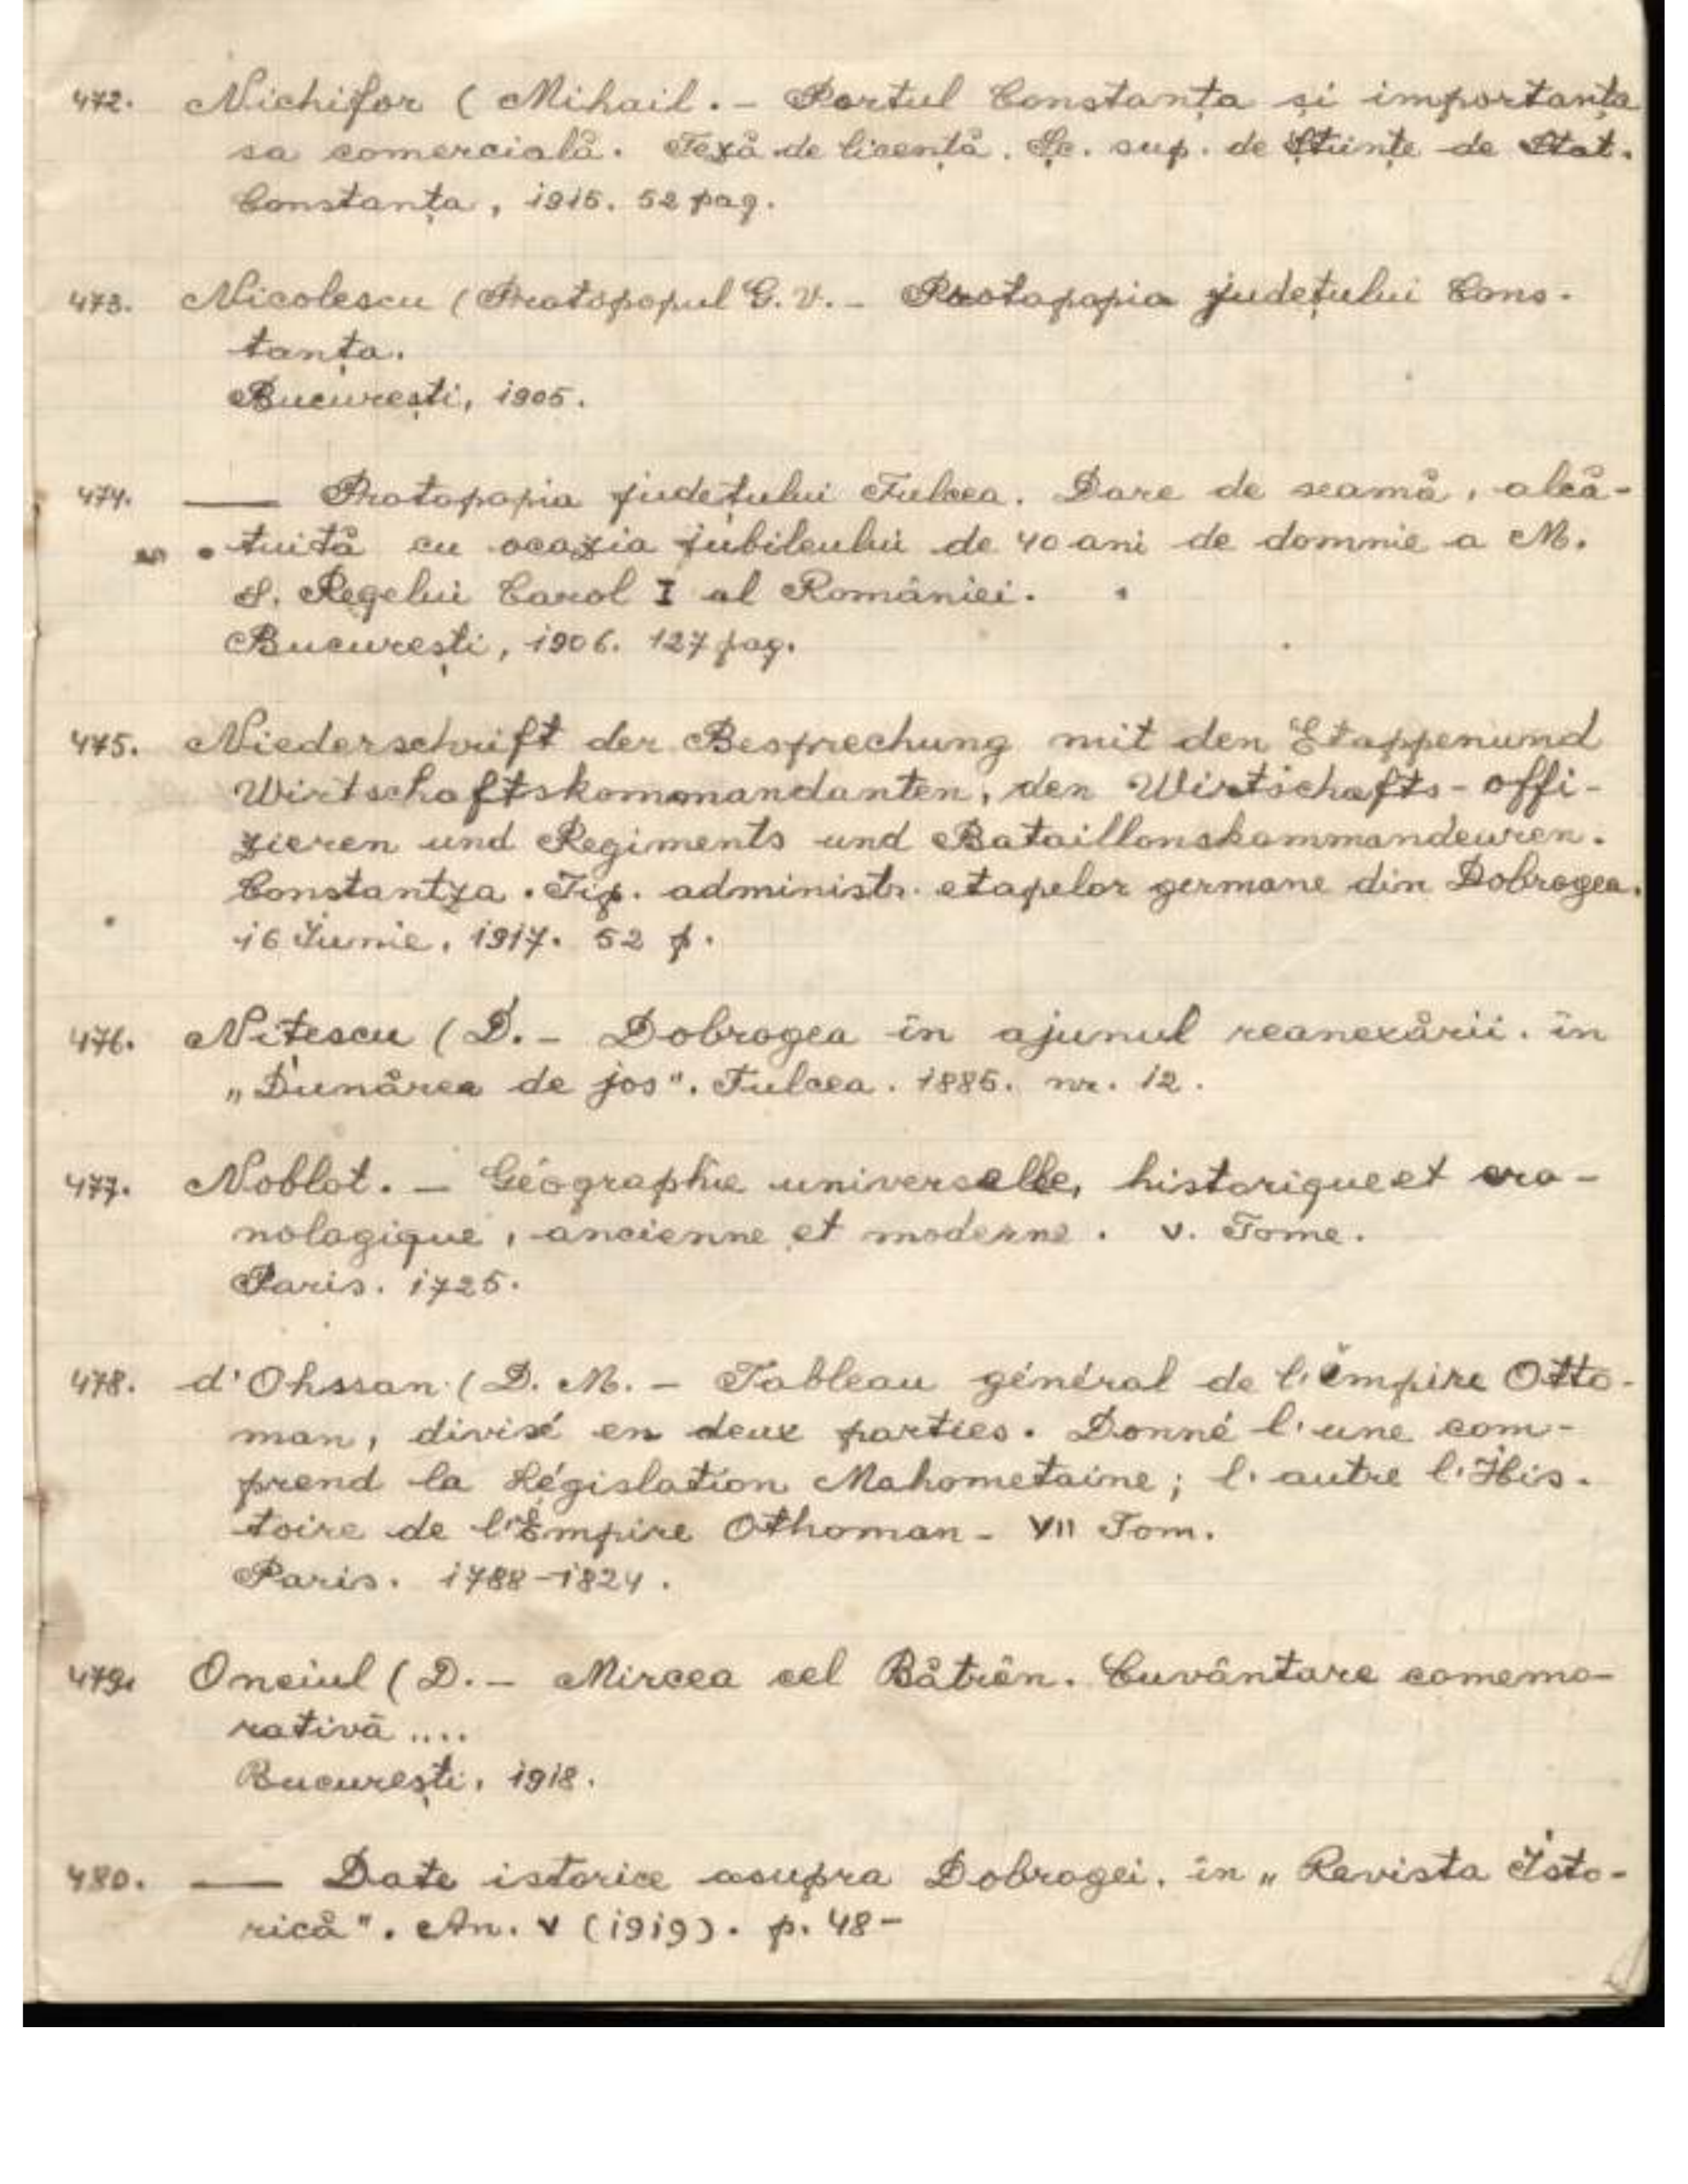 472. Nichifor (Mihail. – Portul Constanța și importanța
sa comercială. Teză de licență. Șc. sup. de Științe de Stat.
Constanța, 1915. 52 pag.
473. Nicolescu (Protopopul G. V. – Protopopia județului Cons-
tanța.
București, 1905.
474. —— Protopopia județului Tulcea. Dare de seamă, alcă-
tuită cu ocazia jubileului de 40 ani de domnie a M.
S. Regelui Carol I al României.
București, 1906. 127 pag.
475. Niederschrift der Besprechung mit den Etappenund
Wirtschaftskommandanten, den Wirtschafts-offi-
zieren und Regiments und Bataillonskommandeuren.
Constantza. Tip. administr. etapelor germane din Dobrogea.
16 Iunie, 1917. 52 p.
476. Nițescu (D. – Dobrogea în ajunul reanexării. în
„Dunărea de jos". Tulcea. 1885. nr. 12.
477. Noblot. – Géographie universelle, historique et cro-
nologique, ancienne et moderne. V. Tome.
Paris. 1725.
478. d'Ohssan (D. M. – Tableau général de l'Empire Otto-
man, divisé en deux parties. Donné l'une com-
prend la Législation Mahometaine; l'autre l'His-
toire de l'Empire Othoman – VII Tom.
Paris. 1788–1824.
479. Onciul (D. – Mircea cel Bătrân. Cuvântare comemo-
rativă ....
București, 1918.
480. —— Date istorice asupra Dobrogei. în „Revista Isto-
rică". An. V (1919). p. 48–